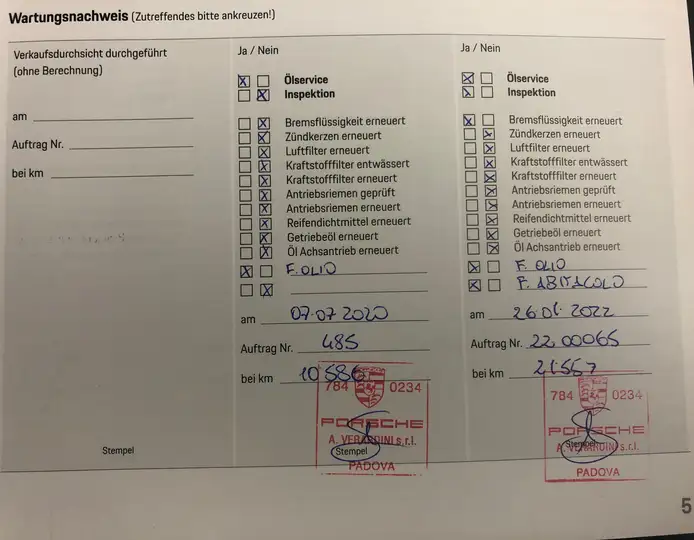 Wartungsnachweis (Zutreffendes bitte ankreuzen!)
Verkaufsdurchsicht durchgeführt
(ohne Berechnung)
am
Auftrag Nr.
bei km
Stempel
Ja / Nein
Ölservice
Inspektion
Bremsflüssigkeit erneuert
Zündkerzen erneuert
Luftfilter erneuert
Kraftstofffilter entwässert
Kraftstofffilter erneuert
Antriebsriemen geprüft
Antriebsriemen erneuert
Reifendichtmittel erneuert
Getriebeöl erneuert
Öl Achsantrieb erneuert
F. OLIO
am 07-07 2020
Auftrag Nr. 485
bei km 10586
784 0234
PORSCHE
A. VERARDINI s.r.l.
Stempel
PADOVA
Ja / Nein
Ölservice
Inspektion
Bremsflüssigkeit erneuert
Zündkerzen erneuert
Luftfilter erneuert
Kraftstofffilter entwässert
Kraftstofffilter erneuert
Antriebsriemen geprüft
Antriebsriemen erneuert
Reifendichtmittel erneuert
Getriebeöl erneuert
Öl Achsantrieb erneuert
F. OLIO
F. ABITACOLO
am 26.01.2022
Auftrag Nr. 22 00065
bei km 21557
784 0234
PORSCHE
A. VERARDINI s.r.l.
Stempel
PADOVA
5